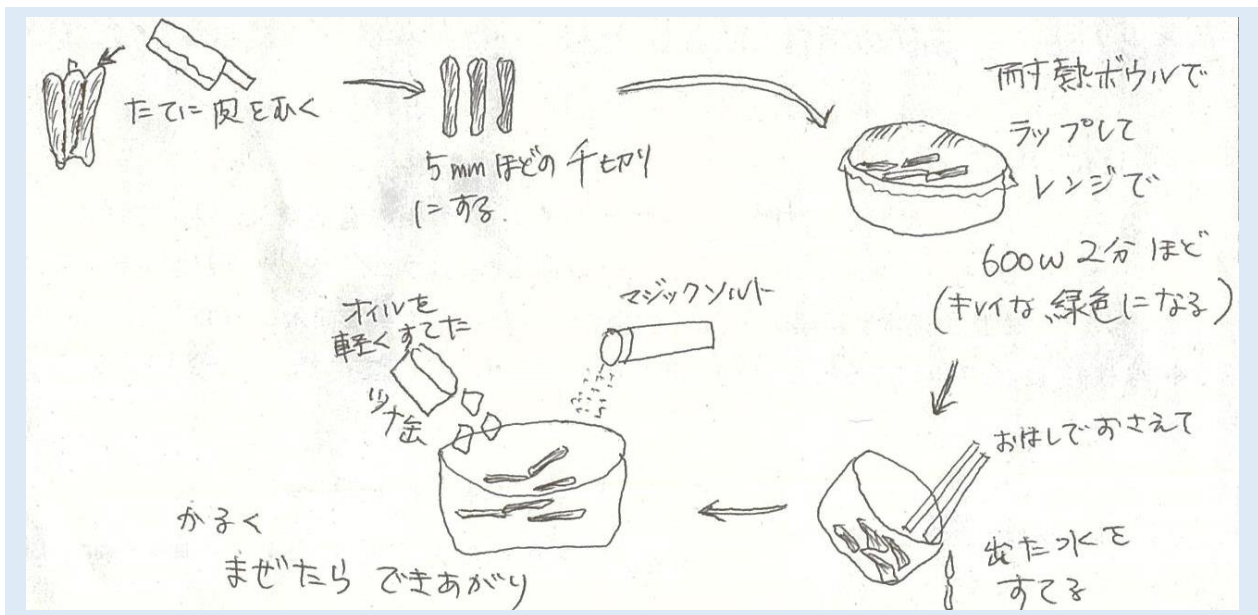 たてに皮をむく
5mmほどの千切り
にする.
耐熱ボウルで
ラップして
レンジで
600w 2分ほど
(キレイな緑色になる)
おはしでおさえて
出た水を
すてる
マジックソルト
オイルを
軽くすてた
ツナ缶
かるく
まぜたら できあがり